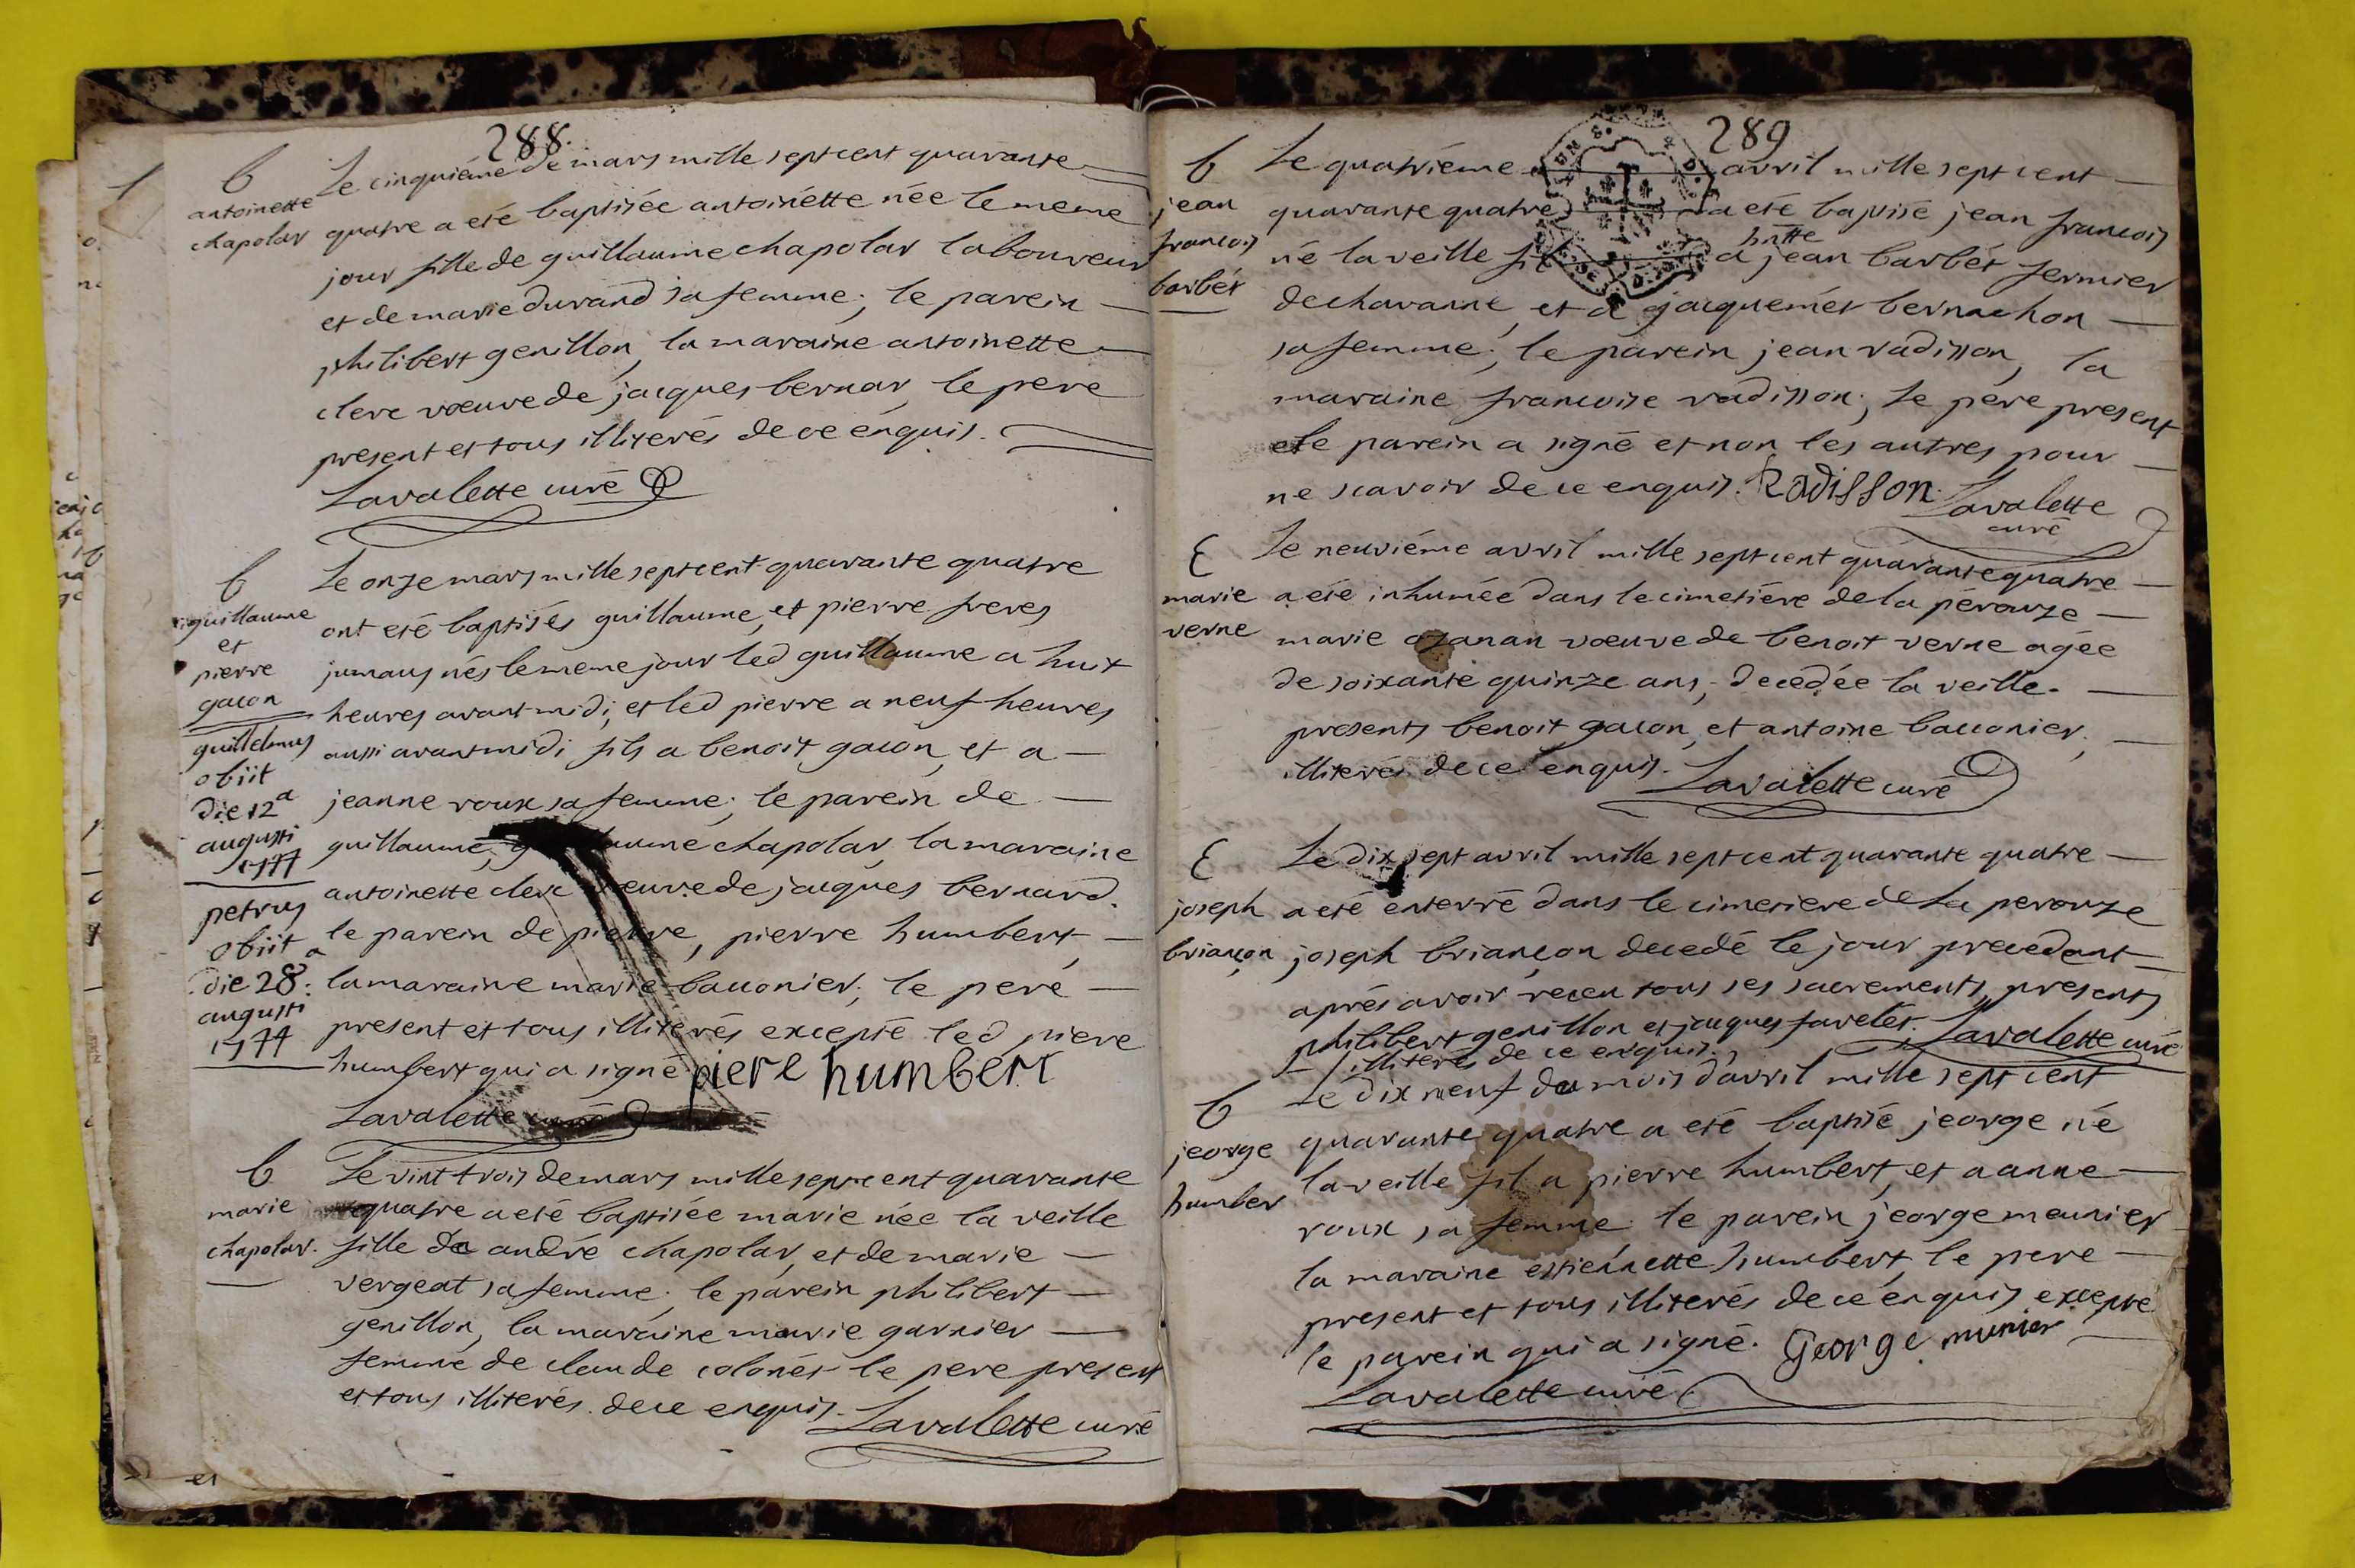 288.
b
antoinette
chapolar
Le cinquiéme de mars mille sept cent quarante
quatre a eté baptisée antoinétte née le meme
jour fille de guillaume chapolar laboureur
et de marie durand sa femme; le parein
philibert genillon, la maraine antoinette
clerc vœuve de jacques bernar, le pere
present et tous illiterés de ce énquis.
Lavalette curé
b
guillaume
et
pierre
gacon
guillelmus
obiit
die 12a
augusti
1744
petrus
obiit
die 28a
augusti
1744
Le onze mars mille sept cent quarante quatre
ont eté baptisés guillaume, et pierre freres
jumaus nés le meme jour led guillaume a huit
heures avant midi, et led pierre a neuf heures
aussi avant midi fils a benoit gacon, et a
jeanne roux sa femme; le parein de
guillaume, guillaume chapolar, la maraine
antoinette clerc veuve de jacques bernard.
le parein de pierre, pierre humbert,
la maraine marie bauonier; le peré
present et tous illiterés excepté led piere
humbert qui a signé piere humbert
Lavalette curé
b
marie
chapolar.
Le vint trois de mars mille sept cent quarante
quatre a eté baptisée marie née la veille
fille de andré chapolar, et de marie
vergeat sa femme. le parein philibert
genillon, la maraine marie garnier
femme de claude colonét le pere present
et tous illiterés. de ce enquis.
Lavalette curé
et
289
b
jean
francois
barbét
Le quatriéme avril mille sept cent
quarante quatre a eté baptisé jean francois
né la veille fil a hŭtte jean barbét fermier
de chavanne, et a jacquemét bernachon
sa femme; le parein jean radisson, la
maraine francoise radisson; le pére present
et le parein a signé et non les autres pour
ne scavoir de ce enquis. Radisson. Lavalette
curé
E
marie
verne
Le neuviéme avril mille sept cent quarante quatre
a eté inhumée dans le cimetiére de la pérouze
marie ozanan vœuve de benoit verne agée
de soixante quinze ans, decedée la veille.
presents benoit gacon, et antoine bauonier,
illiterés de ce enquis. Lavalette curé
E
joseph
briançon
Le dix sept avril mille sept cent quarante quatre
a eté enterré dans le cimetiere de la perouze
joseph briançon decedé le jour precedant
aprés avoir receu tous ses sacrements, presents
philibert genillon et jacques favelét. Lavalette curé
illiterés de ce enquis.
b
jeorge
humber
Le dix neuf du mois d'avril mille sept cent
quarante quatre a eté baptisé jeorge né
la veille fil a pierre humbert, et a anne
roux sa femme. le parein jeorge meunier
la maraine estienette humbert, le pere
present et tous illiterés de ce énquis excepté
le parein qui a signé. George munier
Lavalette curé